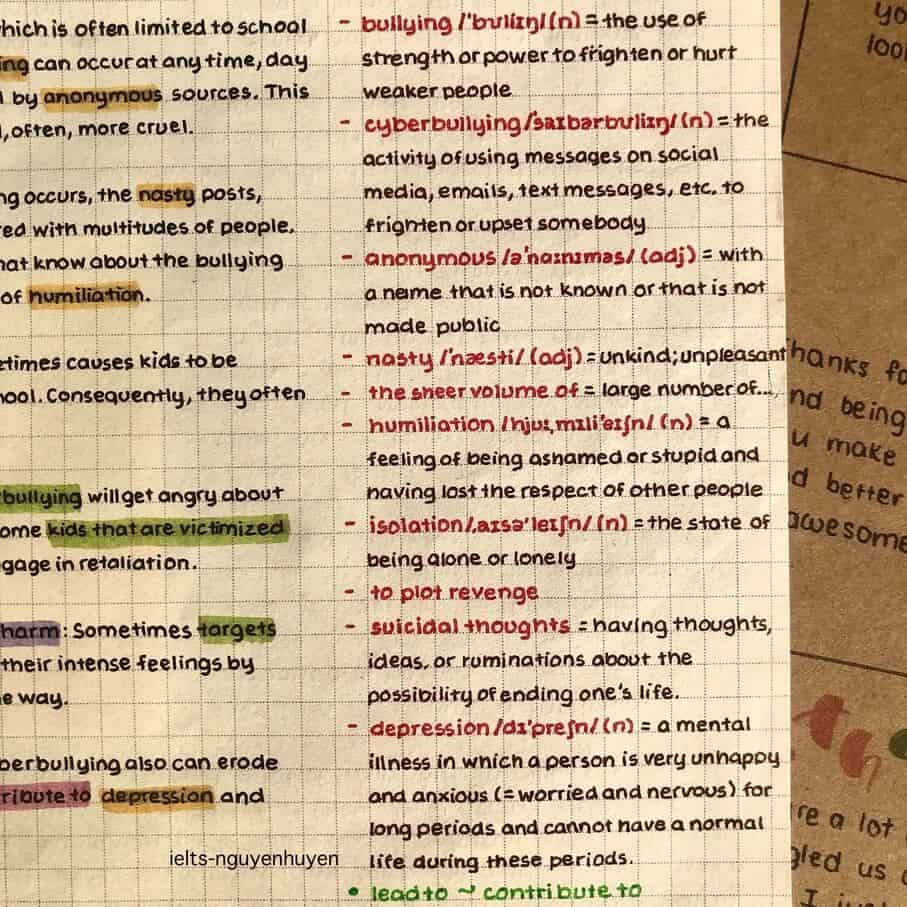 hich is often limited to school
ing can occur at any time, day
l by anonymous sources. This
l, often, more cruel.
ng occurs, the nasty posts,
red with multitudes of people.
hat know about the bullying
of humiliation.
etimes causes kids to be
hool. Consequently, they often
bullying will get angry about
ome kids that are victimized
gage in retaliation.
harm: Sometimes targets
their intense feelings by
e way.
berbullying also can erode
ribute to depression and
ielts-nguyenhuyen
- bullying /'bʊliɪŋ/ (n) = the use of
strength or power to frighten or hurt
weaker people
- cyberbullying /'saɪbərbʊliɪŋ/ (n) = the
activity of using messages on social
media, emails, text messages, etc. to
frighten or upset somebody
- anonymous /ə'naɪnɪməs/ (adj) = with
a name that is not known or that is not
made public
- nasty /'næsti/ (adj) = unkind; unpleasant
- the sheer volume of = large number of...
- humiliation /hjuːˌmɪli'eɪʃn/ (n) = a
feeling of being ashamed or stupid and
having lost the respect of other people
- isolation /ˌaɪsə'leɪʃn/ (n) = the state of
being alone or lonely
- to plot revenge
- suicidal thoughts = having thoughts,
ideas, or ruminations about the
possibility of ending one's life.
- depression /dɪ'preʃn/ (n) = a mental
illness in which a person is very unhappy
and anxious (= worried and nervous) for
long periods and cannot have a normal
life during these periods.
• lead to ~ contribute to
yo
loo
hanks fo
nd being
u make
d better
awesome
re a lot
gled us